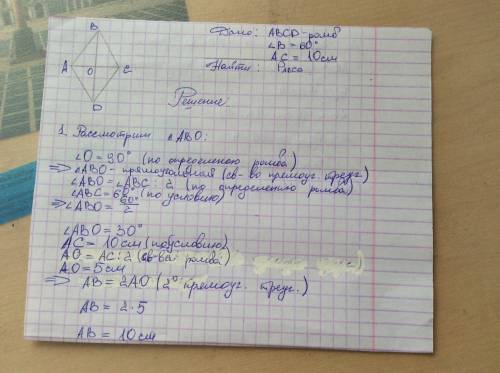 Дано: ABCD-ромб
∠B = 60°
AC = 10см
Найти: Pавсд
B
A
O
C
D
Решение
1. Рассмотрим △ABO:
∠O = 90° (по определению ромба)
=> △ABO - прямоугольный (св-во прямоуг. треуг.)
∠ABO = ∠ABC : 2 (по определению ромба)
∠ABC = 60° (по условию)
=> ∠ABO = 60°/2
∠ABO = 30°
AC = 10см (по условию)
AO = AC : 2 (св-ва ромба)
AO = 5см
=> AB = 2AO (2° прямоуг. треуг.)
AB = 2·5
AB = 10см